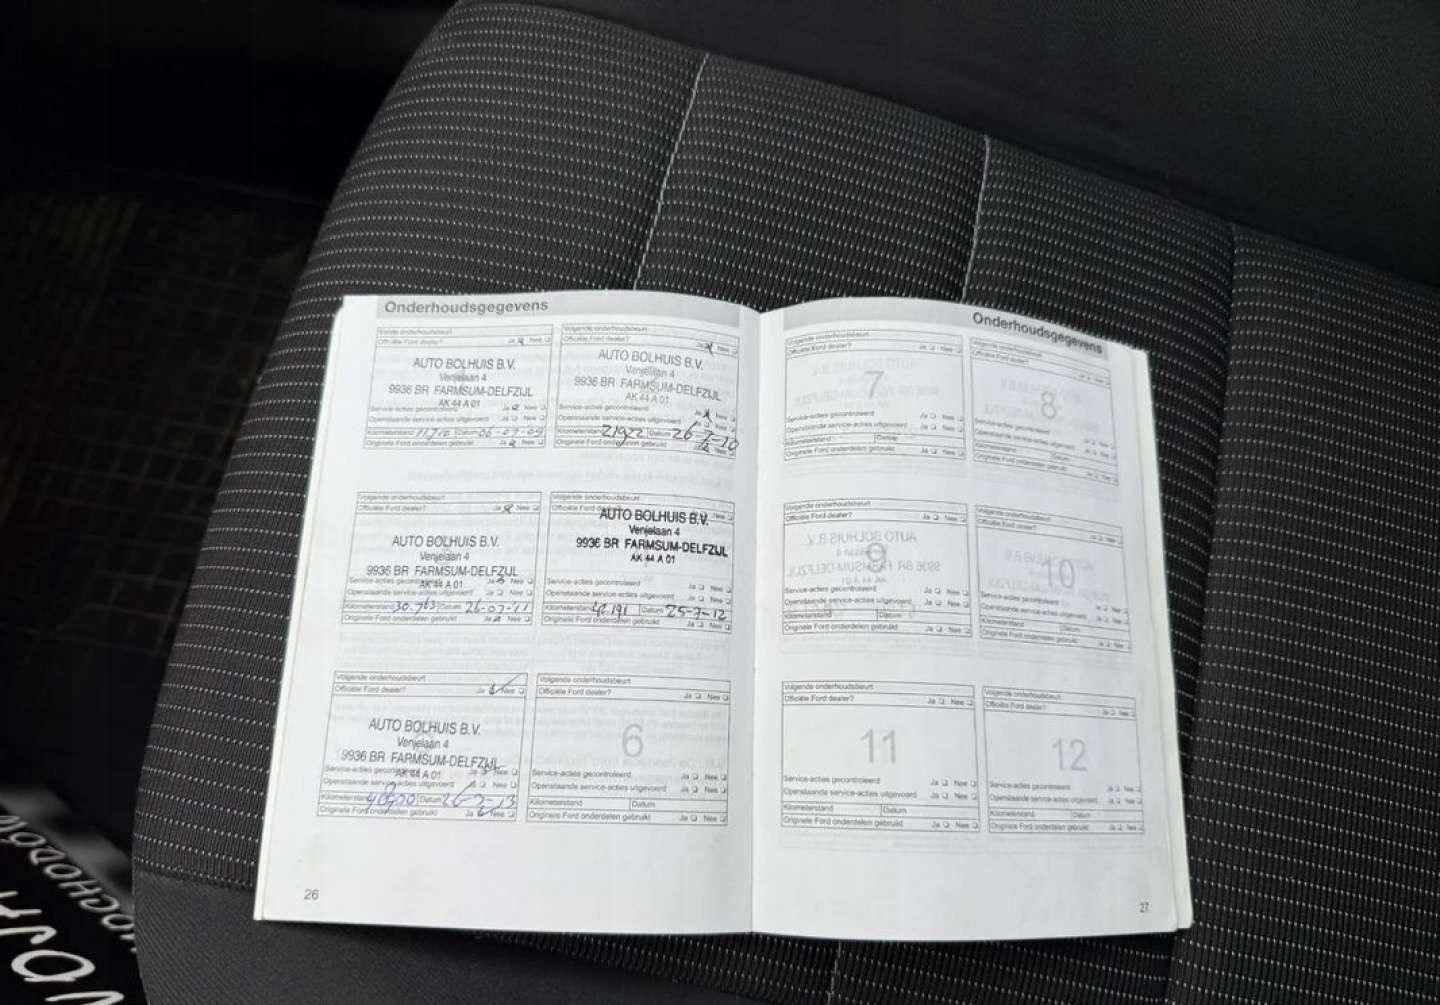 Onderhoudsgegevens
Eerste onderhoudsbeurt
Officiële Ford dealer? Ja Nee
AUTO BOLHUIS B.V.
Venjelaan 4
9936 BR FARMSUM-DELFZIJL
AK 44 A 01
Service-acties gecontroleerd Ja Nee
Openstaande service-acties uitgevoerd Ja Nee
Kilometerstand 11710 Datum 06-07-09
Originele Ford onderdelen gebruikt Ja Nee
Volgende onderhoudsbeurt
Officiële Ford dealer? Ja Nee
AUTO BOLHUIS B.V.
Venjelaan 4
9936 BR FARMSUM-DELFZIJL
AK 44 A 01
Service-acties gecontroleerd Ja Nee
Openstaande service-acties uitgevoerd Ja Nee
Kilometerstand 21922 Datum 26-7-10
Originele Ford onderdelen gebruikt Ja Nee
Volgende onderhoudsbeurt
Officiële Ford dealer? Ja Nee
AUTO BOLHUIS B.V.
Venjelaan 4
9936 BR FARMSUM-DELFZIJL
AK 44 A 01
Service-acties gecontroleerd Ja Nee
Openstaande service-acties uitgevoerd Ja Nee
Kilometerstand 30.763 Datum 26-07-11
Originele Ford onderdelen gebruikt Ja Nee
Volgende onderhoudsbeurt
Officiële Ford dealer? Nee
AUTO BOLHUIS B.V.
Venjelaan 4
9936 BR FARMSUM-DELFZIJL
AK 44 A 01
Service-acties gecontroleerd Ja Nee
Openstaande service-acties uitgevoerd Ja Nee
Kilometerstand Datum 25-7-12
Originele Ford onderdelen gebruikt Ja Nee
Volgende onderhoudsbeurt
Officiële Ford dealer? Ja Nee
AUTO BOLHUIS B.V.
Venjelaan 4
9936 BR FARMSUM-DELFZIJL
AK 44 A 01
Service-acties gecontroleerd Ja Nee
Openstaande service-acties uitgevoerd Ja Nee
Kilometerstand Datum 26-7-13
Originele Ford onderdelen gebruikt Ja Nee
Volgende onderhoudsbeurt
Officiële Ford dealer? Ja Nee
6
Service-acties gecontroleerd Ja Nee
Openstaande service-acties uitgevoerd Ja Nee
Kilometerstand Datum
Originele Ford onderdelen gebruikt Ja Nee
26
Onderhoudsgegevens
Volgende onderhoudsbeurt
Officiële Ford dealer? Ja Nee
7
Service-acties gecontroleerd Ja Nee
Openstaande service-acties uitgevoerd Ja Nee
Kilometerstand Datum
Originele Ford onderdelen gebruikt Ja Nee
Volgende onderhoudsbeurt
Officiële Ford dealer? Ja Nee
8
Service-acties gecontroleerd Ja Nee
Openstaande service-acties uitgevoerd Ja Nee
Kilometerstand Datum
Originele Ford onderdelen gebruikt Ja Nee
Volgende onderhoudsbeurt
Officiële Ford dealer? Ja Nee
9
Service-acties gecontroleerd Ja Nee
Openstaande service-acties uitgevoerd Ja Nee
Kilometerstand Datum
Originele Ford onderdelen gebruikt Ja Nee
Volgende onderhoudsbeurt
Officiële Ford dealer? Ja Nee
10
Service-acties gecontroleerd Ja Nee
Openstaande service-acties uitgevoerd Ja Nee
Kilometerstand Datum
Originele Ford onderdelen gebruikt Ja Nee
Volgende onderhoudsbeurt
Officiële Ford dealer? Ja Nee
11
Service-acties gecontroleerd Ja Nee
Openstaande service-acties uitgevoerd Ja Nee
Kilometerstand Datum
Originele Ford onderdelen gebruikt Ja Nee
Volgende onderhoudsbeurt
Officiële Ford dealer? Ja Nee
12
Service-acties gecontroleerd Ja Nee
Openstaande service-acties uitgevoerd Ja Nee
Kilometerstand Datum
Originele Ford onderdelen gebruikt Ja Nee
27